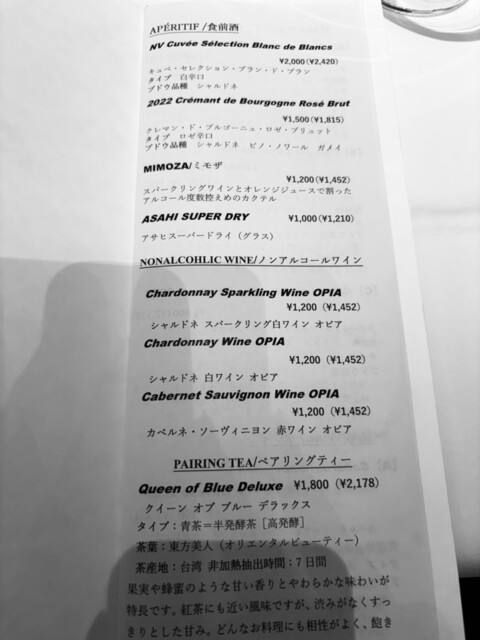 APÉRITIF /食前酒
NV Cuvée Sélection Blanc de Blancs
¥2,000(¥2,420)
キュベ・セレクション・ブラン・ド・ブラン
タイプ 白辛口
ブドウ品種 シャルドネ
2022 Crémant de Bourgogne Rosé Brut
¥1,500(¥1,815)
クレマン・ド・ブルゴーニュ・ロゼ・ブリュット
タイプ ロゼ辛口
ブドウ品種 シャルドネ ピノ・ノワール ガメイ
MIMOZA/ミモザ
¥1,200(¥1,452)
スパークリングワインとオレンジジュースで割った
アルコール度数控えめのカクテル
ASAHI SUPER DRY ¥1,000(¥1,210)
アサヒスーパードライ(グラス)
NONALCOHLIC WINE/ノンアルコールワイン
Chardonnay Sparkling Wine OPIA
¥1,200(¥1,452)
シャルドネ スパークリング白ワイン オピア
Chardonnay Wine OPIA
¥1,200(¥1,452)
シャルドネ 白ワイン オピア
Cabernet Sauvignon Wine OPIA
¥1,200(¥1,452)
カベルネ・ソーヴィニヨン 赤ワイン オピア
PAIRING TEA/ペアリングティー
Queen of Blue Deluxe ¥1,800(¥2,178)
クイーン オブ ブルー デラックス
タイプ:青茶=半発酵茶[高発酵]
茶葉:東方美人(オリエンタルビューティー)
茶産地:台湾 非加熱抽出時間:7日間
果実や蜂蜜のような甘い香りとやわらかな味わいが
特長です。紅茶にも近い風味ですが、渋みがなくすっ
きりとした甘み。どんなお料理にも相性がよく、飽き